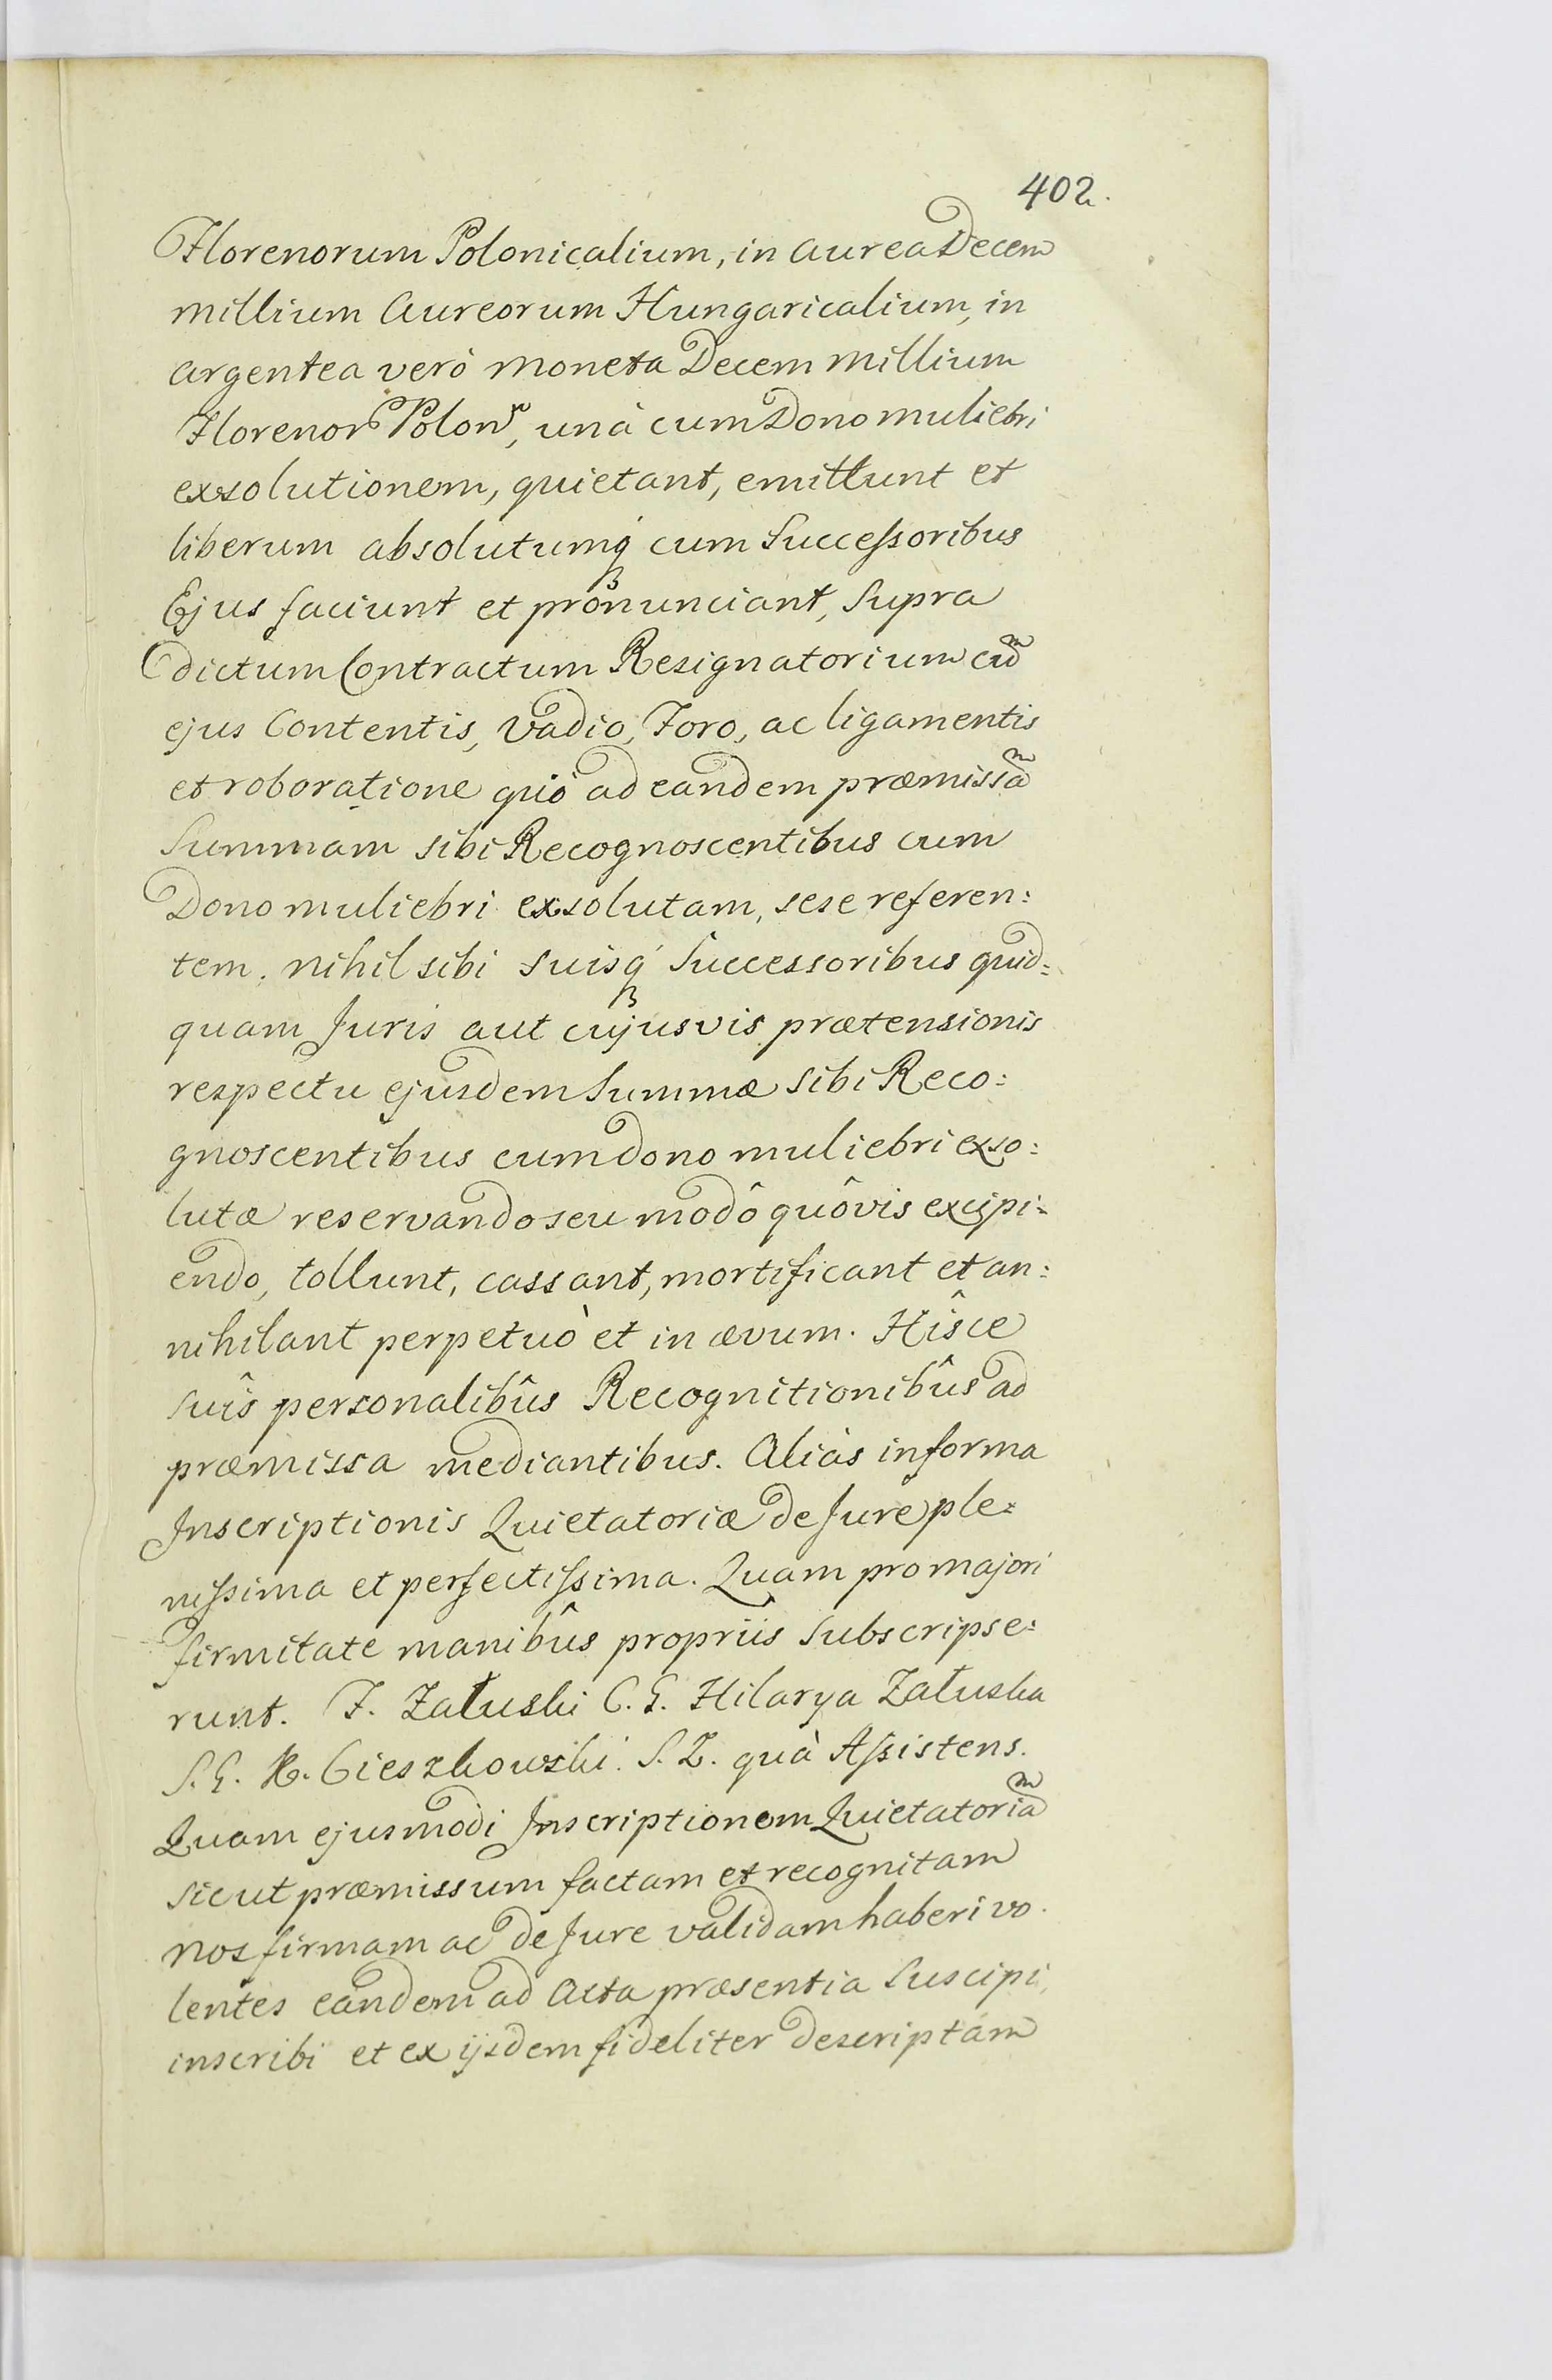 402.
Florenorum Polonicalium, in aurea Decem
millium Aureorum Hungaricalium, in
argentea verò moneta Decem millium
Florenor Polon, unà cum Dono muliebri
exsolutionem, quietant, emittunt et
liberum absolutumq́ cum Successoribus
Ejus faciunt et pronunciant, Supra
dictum Contractum Resignatorium cum
ejus Contentis, Vadio, Foro, ac ligamentis
et roboratione quò ad eandem præmissam
Summam sibi Recognoscentibus cum
Dono muliebri exsolutam, sese referen:
tem. nihil sibi suisq́ Successoribus quid:
quam Juris aut cujusvis prætensionis
respectu ejusdem Summæ sibi Reco:
gnoscentibus cum dono muliebri exso:
lutæ reservando seu modô quôvis excipi:
endo, tollunt, cassant, mortificant et an:
nihilant perpetuò et in ævum. Hîsce
suîs personalibûs Recognitionibûs ad
præmissa mediantibus. Aliàs in forma
Inscriptionis Quietatoriæ de Jure ple:
nissima et perfectissima. Quam pro majori
firmitate manibûs propriis subscripse:
runt. F. Załuski C. G. Hilarya Załuska
S. G. K. Cieszkowski. S. Z. quà Assistens.
Quam ejusmodi Inscriptionem Quietatoriam
sicut præmissum factam et recognitam
nos firmam ac de Jure validam haberi vo
lentes eandem ad Acta præsentia suscipi,
inscribi et ex ijsdem fideliter descriptam